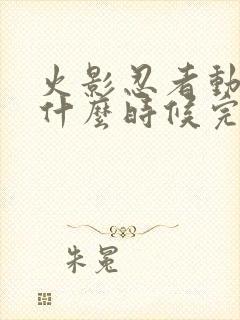 火影忍者動
什麼時候完
朱冕